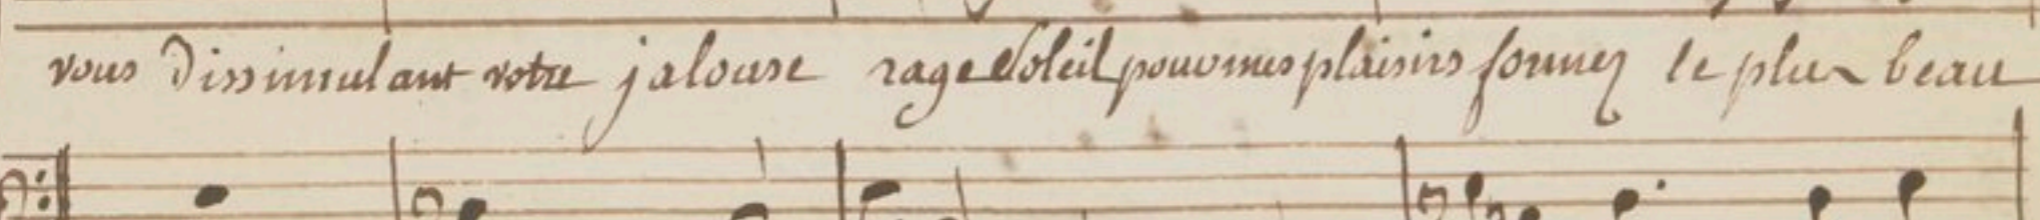 vous Dissimulant votre jalouse rage Soleil pour mes plaisirs formez le plus beau